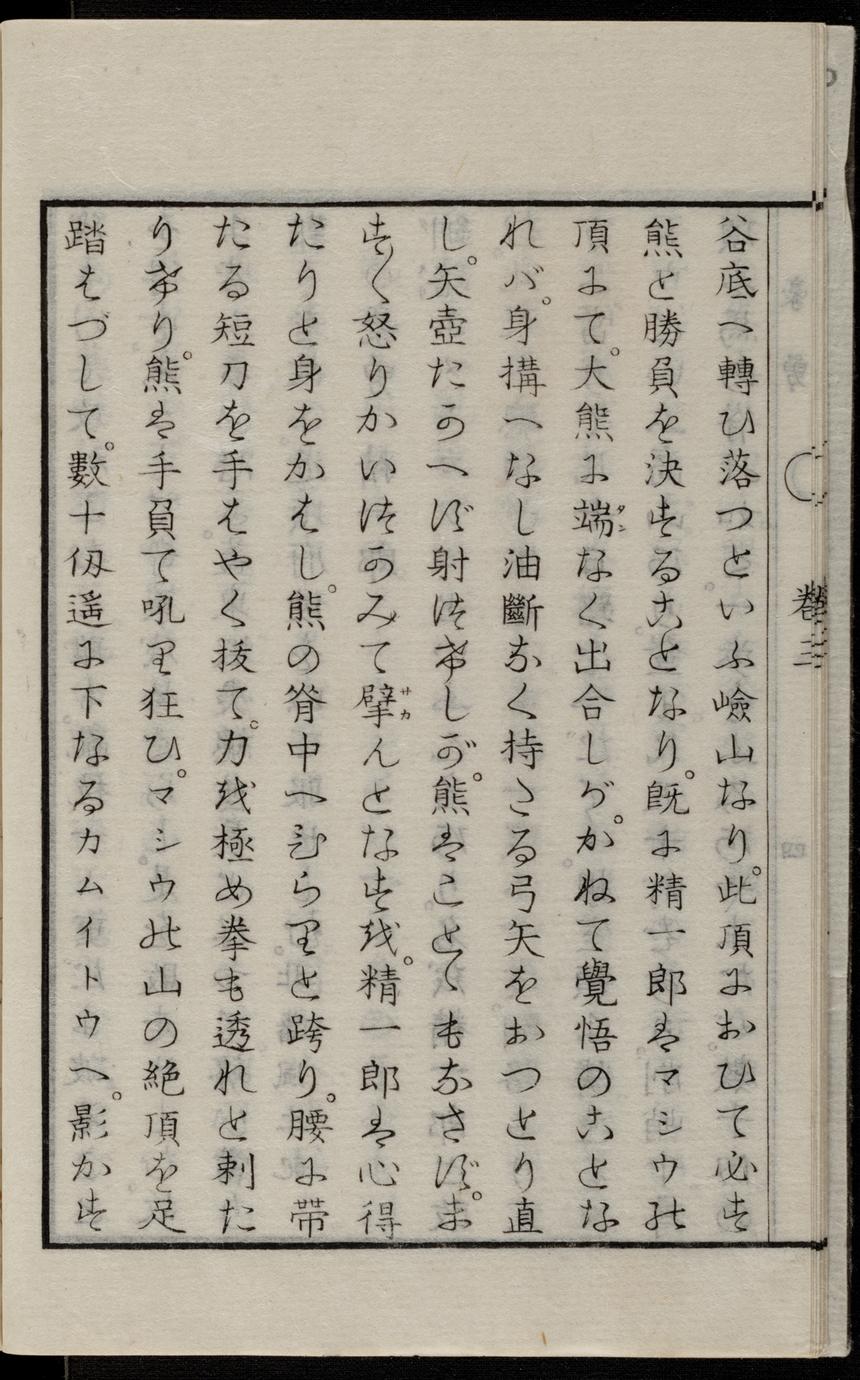 谷底へ轉ひ落つといふ嶮山なり。此頂におひて必す
熊と勝負を決することなり。既に精一郎はマシウの
頂にて。大熊に端タンなく出合しが。かねて覺悟のことな
れバ。身構へなし油斷なく持さる弓矢をおつとり直
し。矢壺たのへず射はずしが。熊はことゝもなさず。ま
すく怒りかいはのみて擘サカんとなすを。精一郎は心得
たりと身をかはし。熊の脊中へひらりと跨り。腰に帶
たる短刀を手はやく拔て。力を極め拳も透れと刺た
りけり。熊は手負て吼り狂ひ。マシウの山の絶頂を足
踏はづして。數十仭遥に下なるカムイトウへ。影かす
卷三